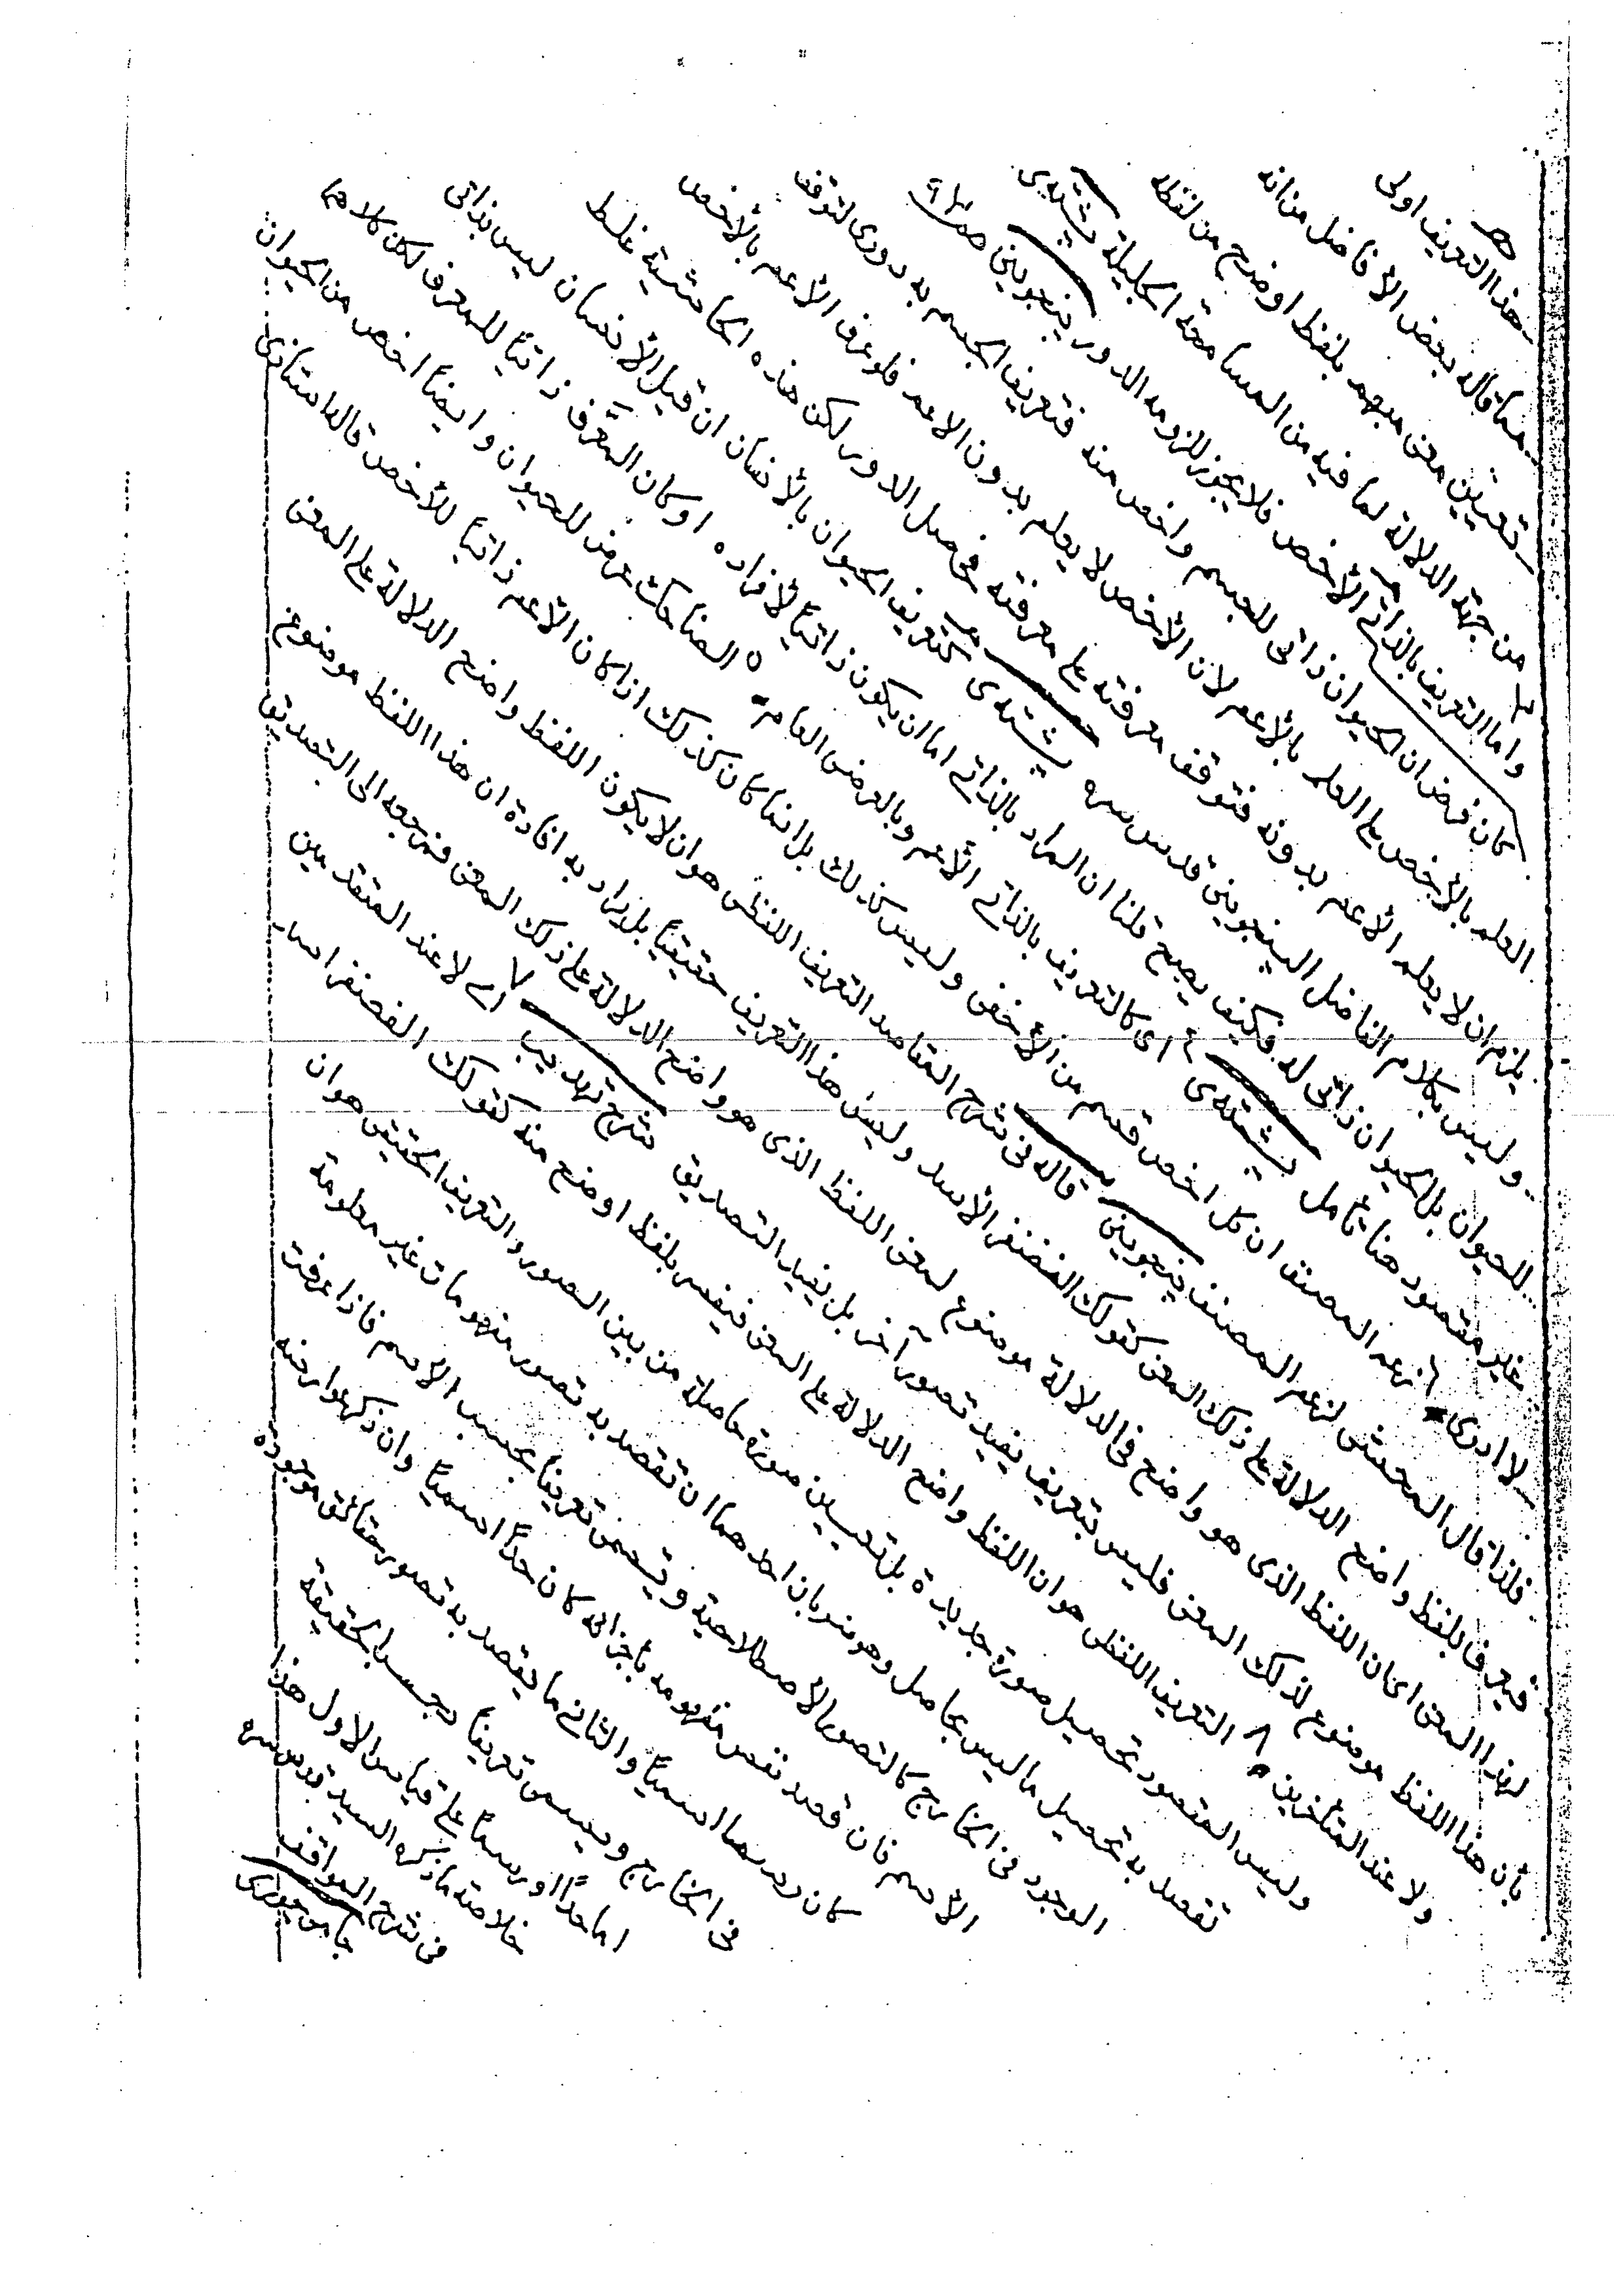 هذا التعريف اولى
مما قاله بعض الأفاضل من انه
تعيين معنى مبهم بلفظ اوضح من لفظه
من جهة الدلالة لما فيه من المسامحة الجليلة پشتدى
٣ واما التعريف بالذاتى الأخص فلا يجوز للزومه الدور ينجوينى
كان فرض ان الحيوان ذاتى للجسم واخص منه فتعريف الجسم به دورى لتوقف
العلم بالأخص على العلم بالأعم لان الأخص لا يعلم بدون الاعم فلو عرف الأعم بالأخص
يلزم ان لا يعلم الأعم بدونه فتوقف معرفته على معرفته فحصل الدور لكن هذه الحاشية غلط
وليس بكلام الفاضل الينجوينى قدس سره پشتدى كتعريف الحيوان بالأنسان ان قيل الأنسان ليس بذاتى
للحيوان بل الحيوان ذاتى له فكيف يصح قلنا ان المراد بالذاتى اما ان يكون ذاتياً لأفراده او كان المعَّرف ذاتياً للمعرف لكن كلاهما
غير مقصود هنا تأمل پشتدى ٤ اى كالتعريف بالذاتى الأعم وبالعرضى العام ٥ الضاحك عرض للحيوان وايضاً اخص من الحيوان
لا ادرى ٦ زعم المصنف ان كل اخص قسم من الأخفى وليس كذلك بل انما كان كذلك اذا كان الأعم ذاتياً للأخص قاله استاذى
فلذا قال المحشى لزعم المصنف ينجوينى قاله فى شرح المقاصد التعريف اللفظى هو ان لا يكون اللفظ واضح الدلالة على المعنى
فيعرف بلفظ واضح الدلالة على ذلك المعنى كقولك الغضنفر الأسد وليس هذا التعريف حقيقياً بل يراد به افادة ان هذا اللفظ موضوع
لهذا المعنى اى ان اللفظ الذى هو واضح فى الدلالة موضوع لمعنى اللفظ الذى هو واضح الدلالة على ذلك المعنى فمرجعه الى التصديق
بأن هذا اللفظ موضوع لذلك المعنى فليس بتعريف يفيد تصوراً آخر بل يفيد التصديق شرح تهذيب ٧ اى لا عند المتقدمين
ولا عند المتأخرين ٨ التعريف اللفظى هو ان اللفظ واضح الدلالة على المعنى فيفسر بلفظ اوضح منه كقولك الغضنفر اسد
وليس المقصود تحصيل صورة جديدة بل تعيين صورة حاصلة من بين الصور والتعريف الحقيقى هو ان
تقصد به تحصيل ما ليس بحاصل وهو ضربان احدهما ان تقصد به تصور مفهومات غير معلومة
الوجود فى الخارج كالتصور الأصطلاحية ويسمى تعريفاً بحسب الأسم فاذا عرفت
الأسم فان قصد نفس مفهومه بأجزائه كان حداً اسمياً وان ذكر لوازمه
كان رسما اسمياً والثانى ما يقصد به تصور حقائق موجودة
فى الخارج ويسمى تعريفاً بحسب الحقيقة
اما حداً او رسماً على قياس الاول هذا
خلاصة ما ذكره السيد قدس سره
فى شرح المواقف